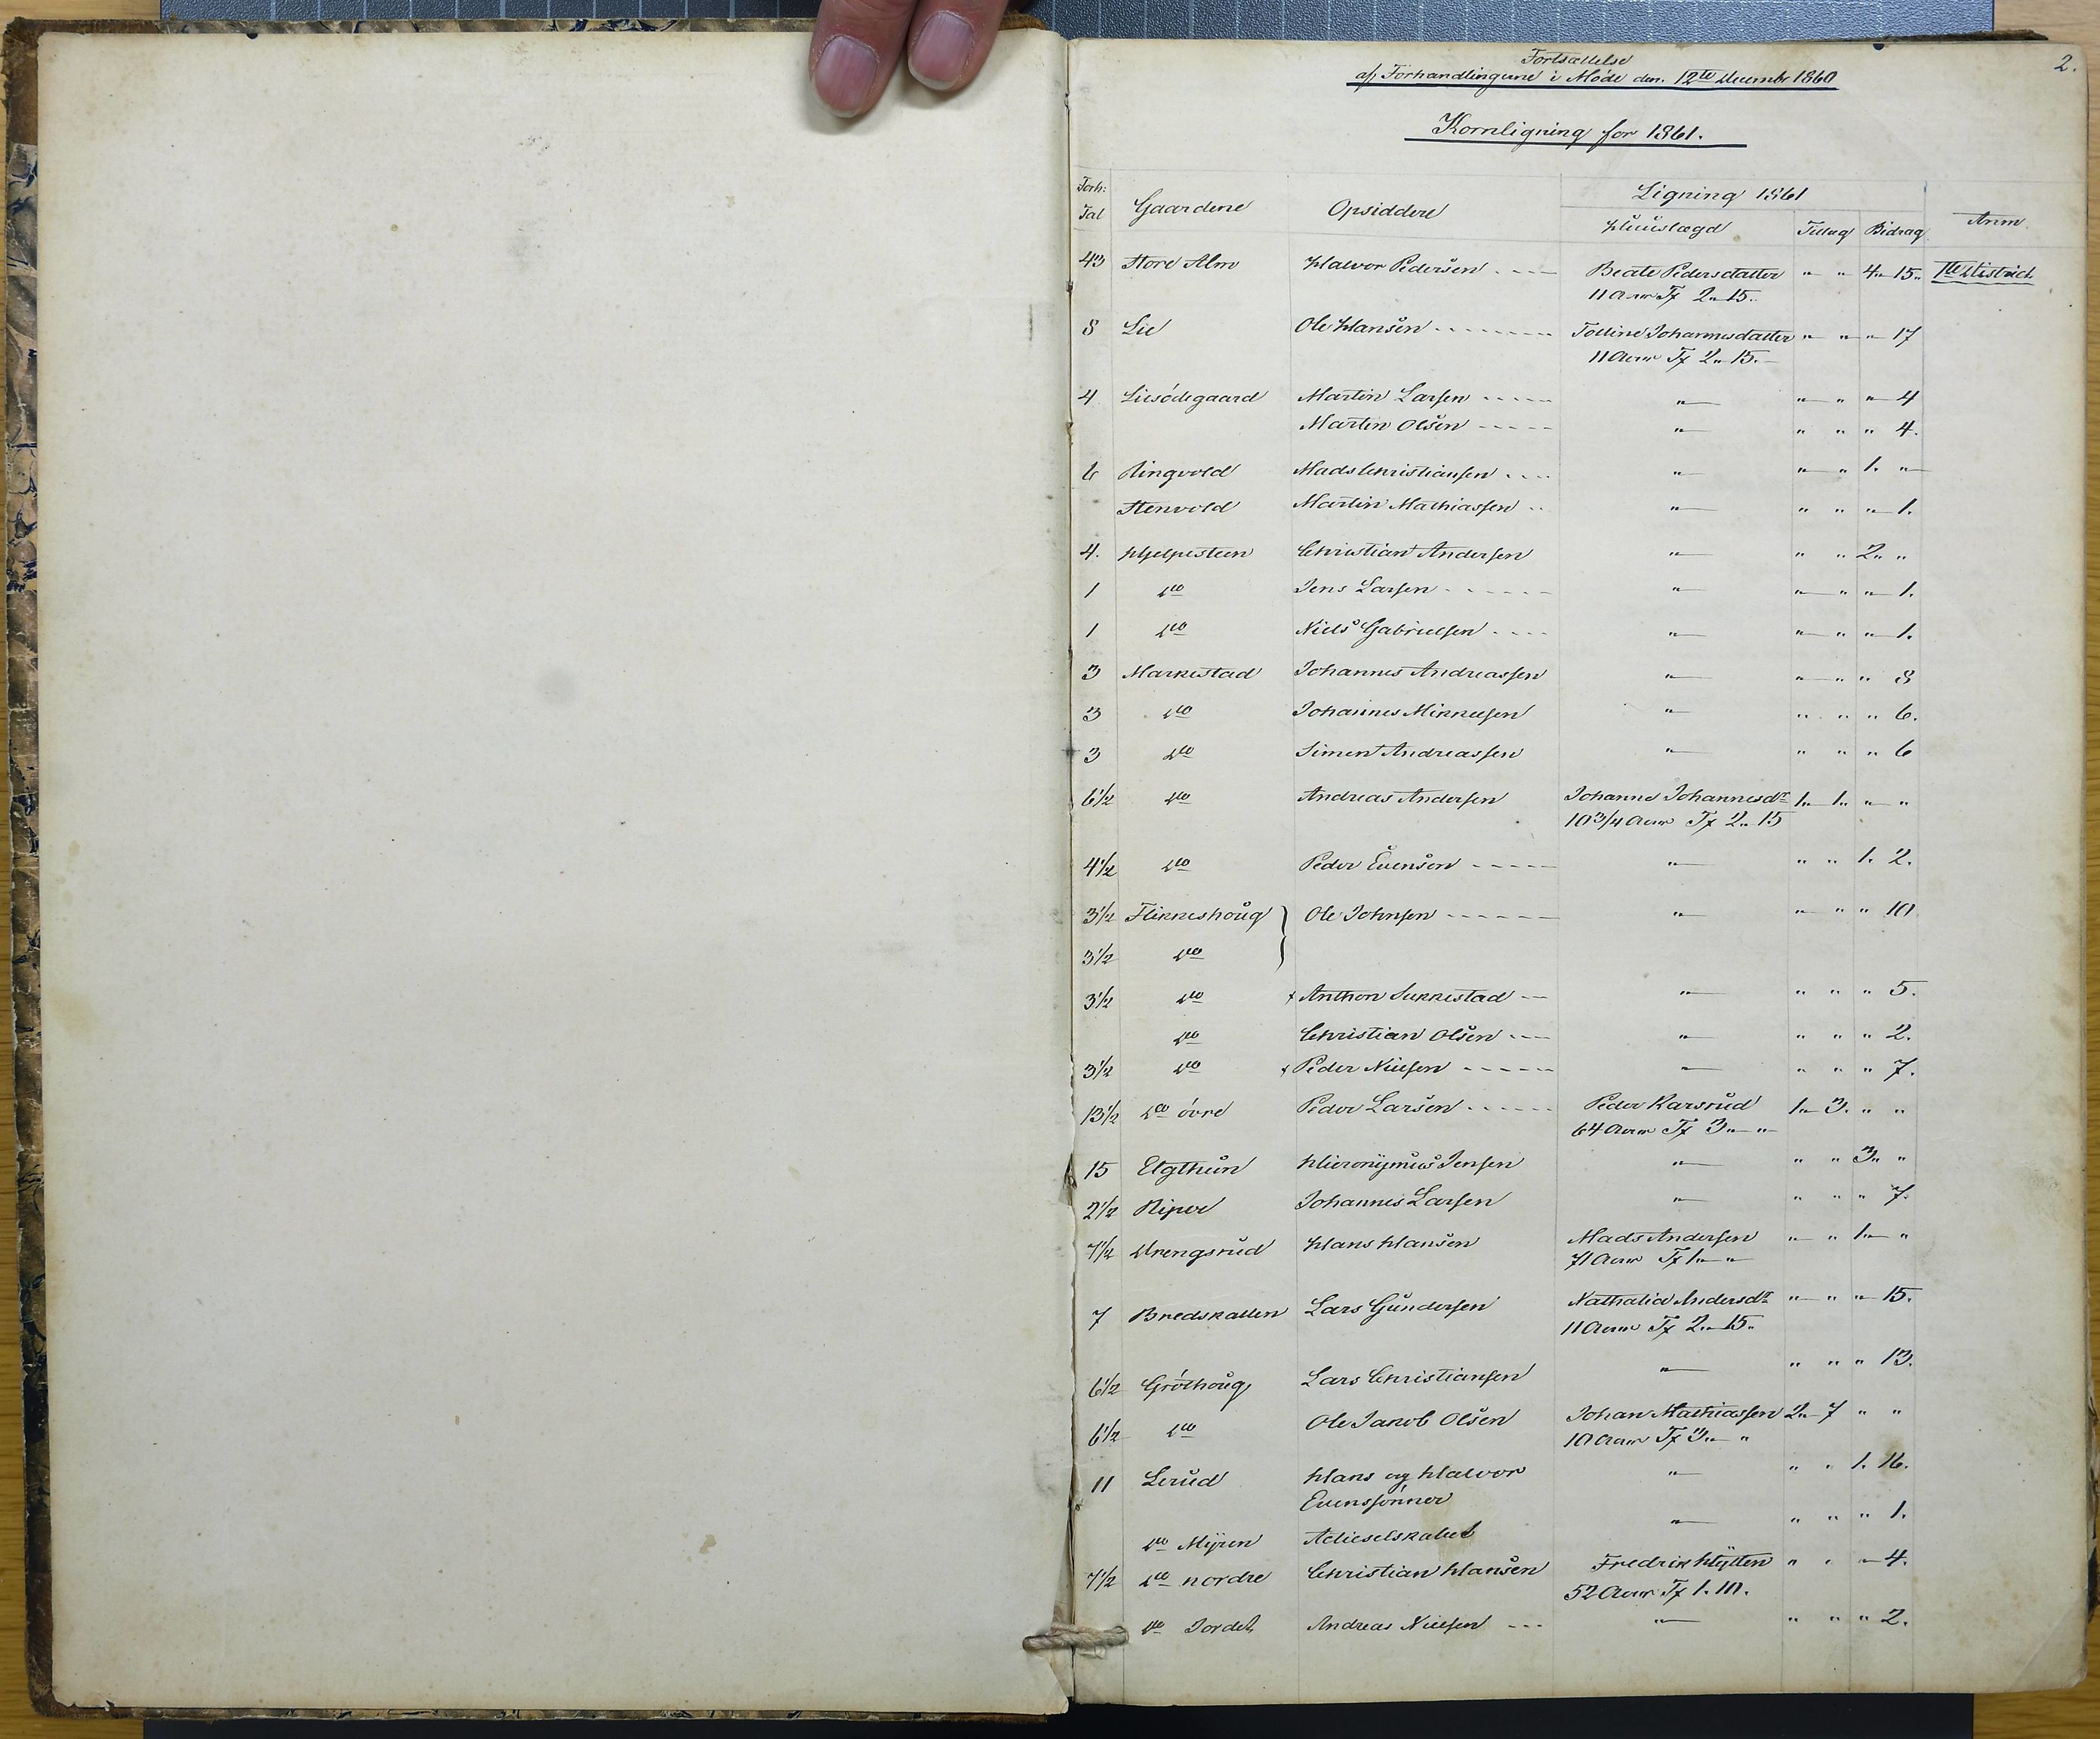 2.
Fortsættelse
af Forhandlingerne i Møde den 12te Decembr 1860
Kornligning for 1861.
Forh: Tal Gaardene Opsiddere Ligning 1861 Anm.
Huuslægd Tillæg Bidrag
43 Store Alm Halvor Pedersen Beate Pedersdatter " " 4 " 15 " 1te District
11 Aar Tx 2 " 15.
8 Lie Ole Hansen Johannesdatter " " " 17
11 Aar Tx 2 " 15.
4 Liesødegaard Martin Larsen " " " " 4
Martin Olsen " " " " 4.
6 Ringvold Mads Christiansen " " " 1. "
Stenvold Martin Mathiassen " " " " 1.
4. Hjelpesteen Christian Andersen " " " 2 " "
1 do Jens Larsen " " " " 1.
1 do Niels Gabrielsen " " " " 1.
3 Markestad Johannes Andreassen " " " " 8
3 do Johannes Mikkelsen " " " " 6.
3 do Simen Andreassen " " " " 6
6 1/2 do Andreas Andersen Johanne Johannesdr 1 " 1 " " "
10 3/4 Aar Tx 2 " 15
4 1/2 do Peder Evensen " " " 1. 2.
3 1/2 Flikkeshoug } Ole Johnsen " " " " 10
3 1/2 do
3 1/2 do x Anthon Sukkestad " " " " 5.
do Christian Olsen " " " " 2.
3 1/2 do x Peder Nielsen " " " " 7.
13 1/2 do øvre Peder Larsen Peder Karsrud 1 " 3. " "
64 Aar Tx 3 " "
15 Elgthun Hieronymus Jensen " " " 3 " "
2 1/2 Riper Johannes Larsen " " " " 7.
7 1/2 Drengsrud Hans Hansen Mads Andersen " " 1 " "
71 Aar Tx 1 " "
7 Bredskallen Lars Gundersen Nathalia Andersdr " " " 15.
11 Aar Tx 2 " 15.
6 1/2 Grøthoug Lars Christiansen " " " " 13.
6 1/2 do Ole Jakob Olsen Johan Mathiassen 2 " 7 " "
10 Aar Tx 3 " "
11 Lerud Hans og Halvor " " " 1. 16.
Evensønner
do Myren Actieselskabet " " " " 1.
7 1/2 do nordre Christian Hansen Fredrik Hytten " " " 4.
52 Aar Tx 1. 10.
do Jordet Andreas Nielsen " " " " 2.